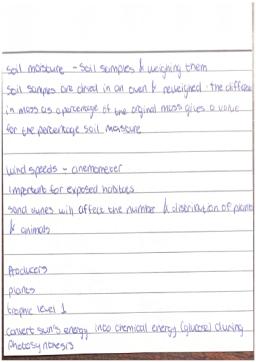 Soil moisture - Soil samples & weighing them
Soil samples are dried in an oven & reweighed. The differe
in mass as a percentage of the orginal mass gives a value
for the percentage soil moisture
Wind speeds - anemometer
Important for exposed habitats
sand dunes with affect the number & distribution of plants
& animals
Producers
plants
trophic level 1
convert sun's energy into chemical energy (glucose) during
photosynthesis